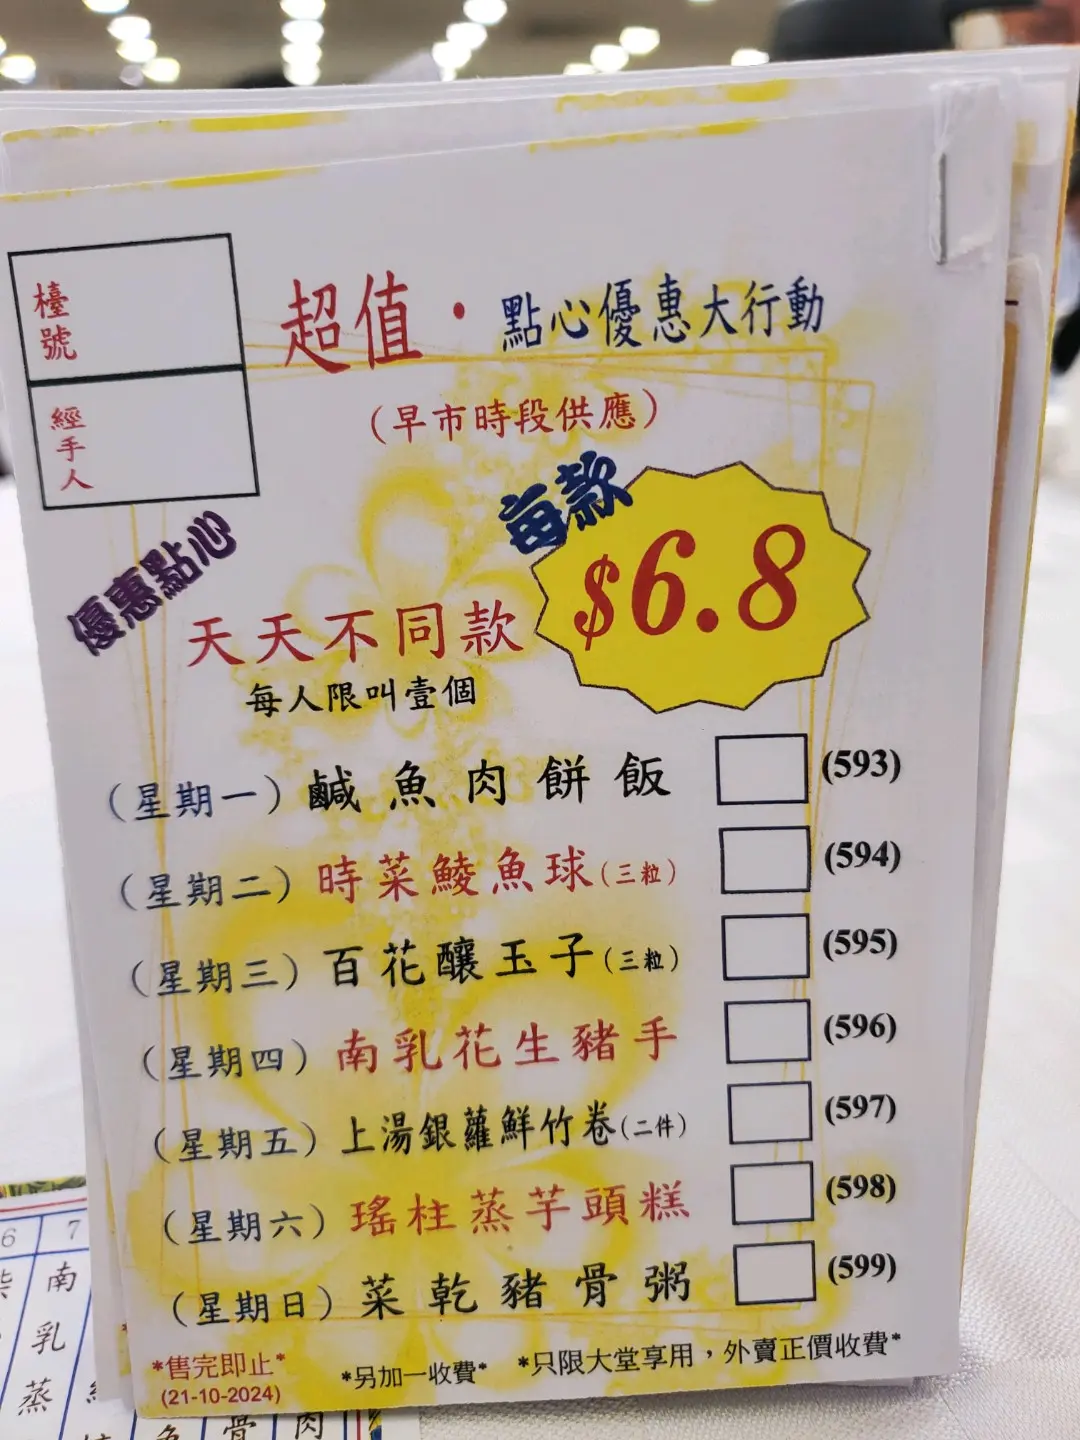 檯號
經手人
超值·點心優惠大行動
(早市時段供應)
優惠點心
每款
$6.8
天天不同款
每人限叫壹個
(星期一) 鹹魚肉餅飯 (593)
(星期二) 時菜鯪魚球(三粒) (594)
(星期三) 百花釀玉子(三粒) (595)
(星期四) 南乳花生豬手 (596)
(星期五) 上湯銀蘿鮮竹卷(二件) (597)
(星期六) 瑤柱蒸芋頭糕 (598)
(星期日) 菜乾豬骨粥 (599)
*售完即止* *另加一收費* *只限大堂享用，外賣正價收費*
(21-10-2024)
6 7
南
乳
蒸
骨
肉